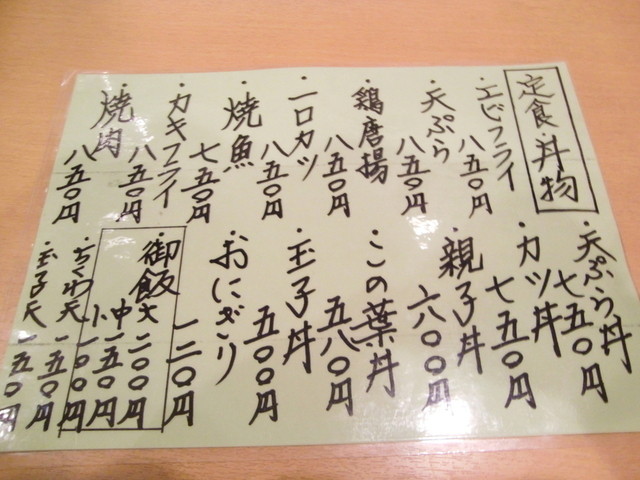 定食・丼物
・エビフライ
八五〇円
・天ぷら
八五〇円
・鶏唐揚
八五〇円
・一口カツ
八五〇円
・焼魚
七五〇円
・カキフライ
八五〇円
・焼肉
八五〇円
・天ぷら丼
七五〇円
・カツ丼
七五〇円
・親子丼
六〇〇円
・この葉丼
五八〇円
・玉子丼
五〇〇円
・おにぎり
一二〇円
・御飯大二〇〇円
中一五〇円
小一〇〇円
・ちくわ天一五〇円
・玉子天一五〇円